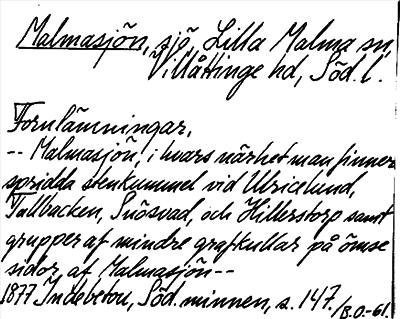 Malmasjön, sjö, Lilla Malma sn,
Villåttinge hd, Söd. l.
Fornlämningar.
-- Malmasjön, i hvars närhet man finner
spridda stenkummel vid Ulricelund,
Tallbacken, Snösvad, och Hillerstorp samt
grupper af mindre grafkullar på ömse
sidor af Malmasjön--
1877 Indebetou, Söd. minnen, s. 147. /B.O-61.